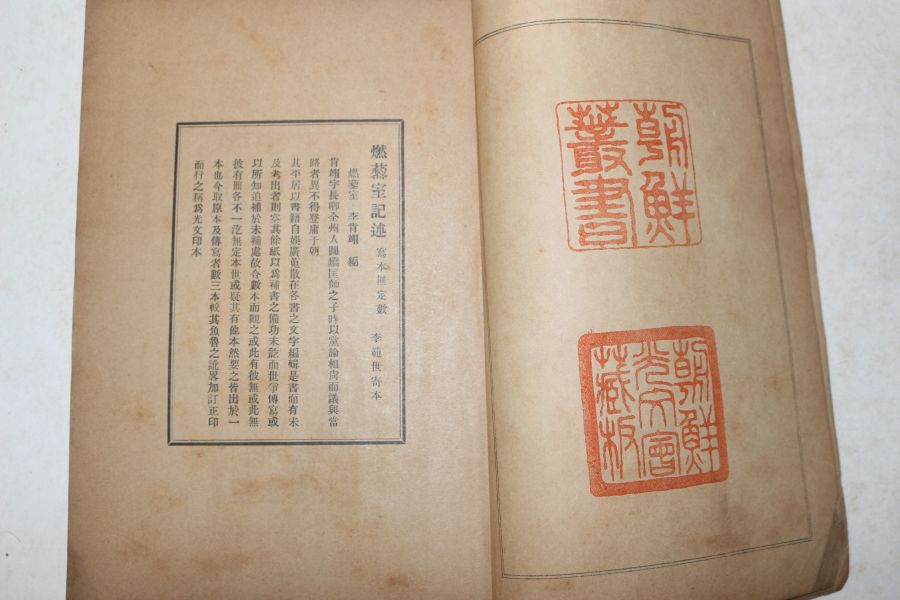 朝鮮
叢書
朝鮮
光文會
藏板
燃藜室記述 寫本無定數 李範世寄本
燃藜室 李肯翊 編
肯翊字長卿全州人圓嶠匡師之子時以黨論相尙而議與當
路者異不得登庸于朝
其平居以書籍自娛廣蒐散在各書之文字編輯是書而有未
及考出者則空其餘紙以爲補書之備功未訖而世爭傳寫或
以所知追補於未補處故合數本而觀之或此有彼無或此無
彼有面各不一汔無定本世或疑其有他本然要之皆出於一
本也今取原本及傳寫者數三本較其魚魯之訛畧加訂正印
而行之稱爲光文印本